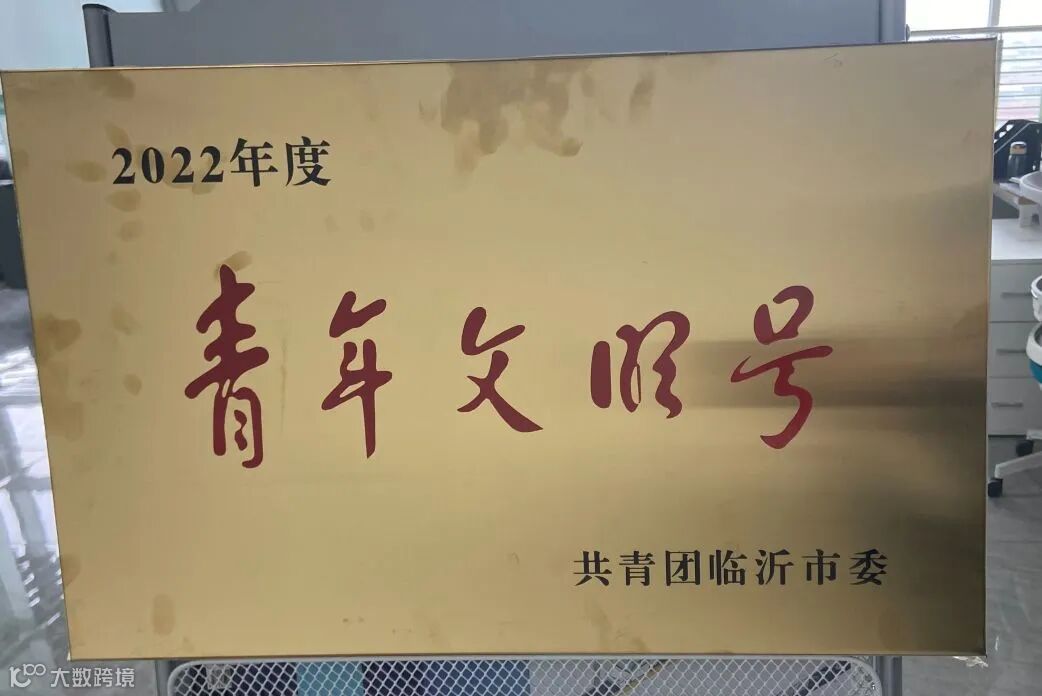 2022年度
青年文明号
共青团临沂市委
大数跨境